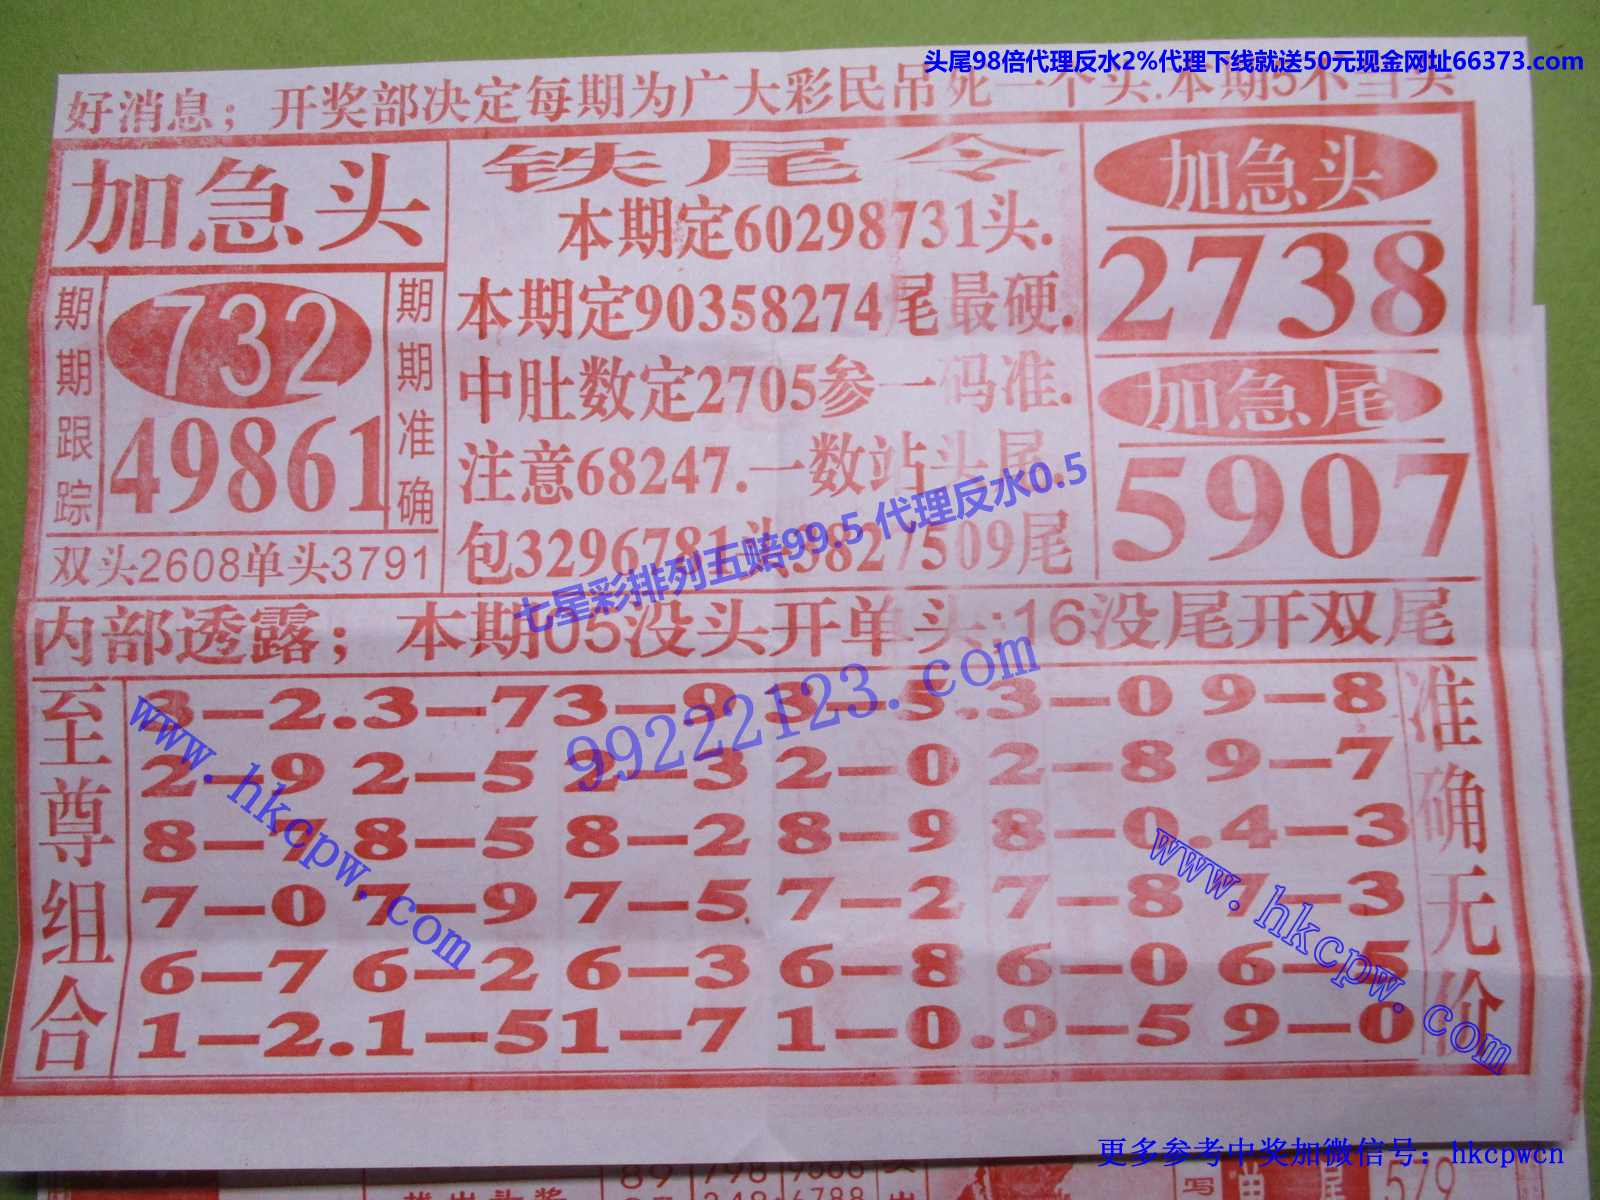 头尾98倍代理反水2%代理下线就送50元现金网址66373.com
好消息；开奖部决定每期为广大彩民吊死一个头.本期5不当头
加急头
期期跟踪
732
49861
期期准确
双头2608单头3791
铁尾令
本期定60298731头.
本期定90358274尾最硬.
中肚数定2705参一码准.
注意68247.一数站头尾.
包3296781头3827509尾
加急头
2738
加急尾
5907
七星彩排列五赔99.5 代理反水0.5
内部透露；本期05没头开单头;16没尾开双尾
99222123.com
至尊组合
3—2.3—73—93—5.3—0 9—8
2—9 2—5 2—3 2—0 2—8 9—7
8—7 8—5 8—2 8—9 8—0.4—3
7—0 7—9 7—5 7—2 7—8 7—3
6—7 6—2 6—3 6—8 6—0 6—5
1—2.1—51—7 1—0.9—5 9—0
准确无价
www.hkcpw.com
www.hkcpw.com
更多参考中奖加微信号：hkcpwcn